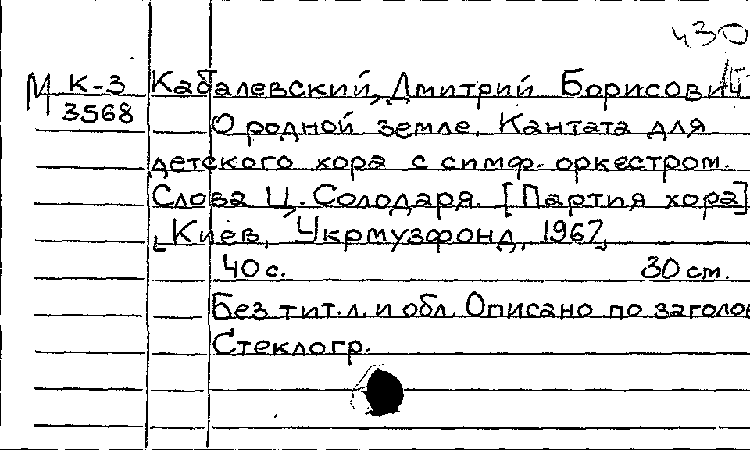 430
М К-3 Кабалевский, Дмитрий Борисович
3568
О родной земле. Кантата для
детского хора с симф. оркестром.
Слова Ц. Солодаря. [Партия хора]
Киев, Укрмузфонд, 1967,
40 с. 30 см.
Без тит. л. и обл. Описано по заголов
Стеклогр.